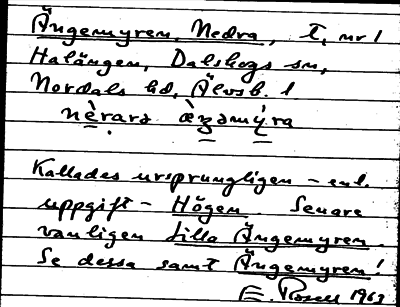 Ängemyren, Nedra, t, nr 1
Halängen, Dalskogs sn,
Nordals hd, Älvsb. l.
nèrarə  àŋəmýra
Kallades ursprungligen – enl.
uppgift – Högen. Senare
vanligen Lilla Ängemyren.
Se dessa samt Ängemyren!
E. Rosell 1963